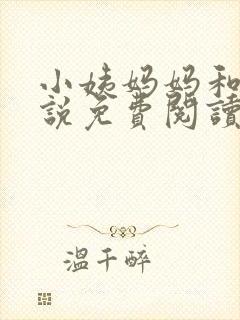 小姨妈妈和
說免費閱讀
溫千醉